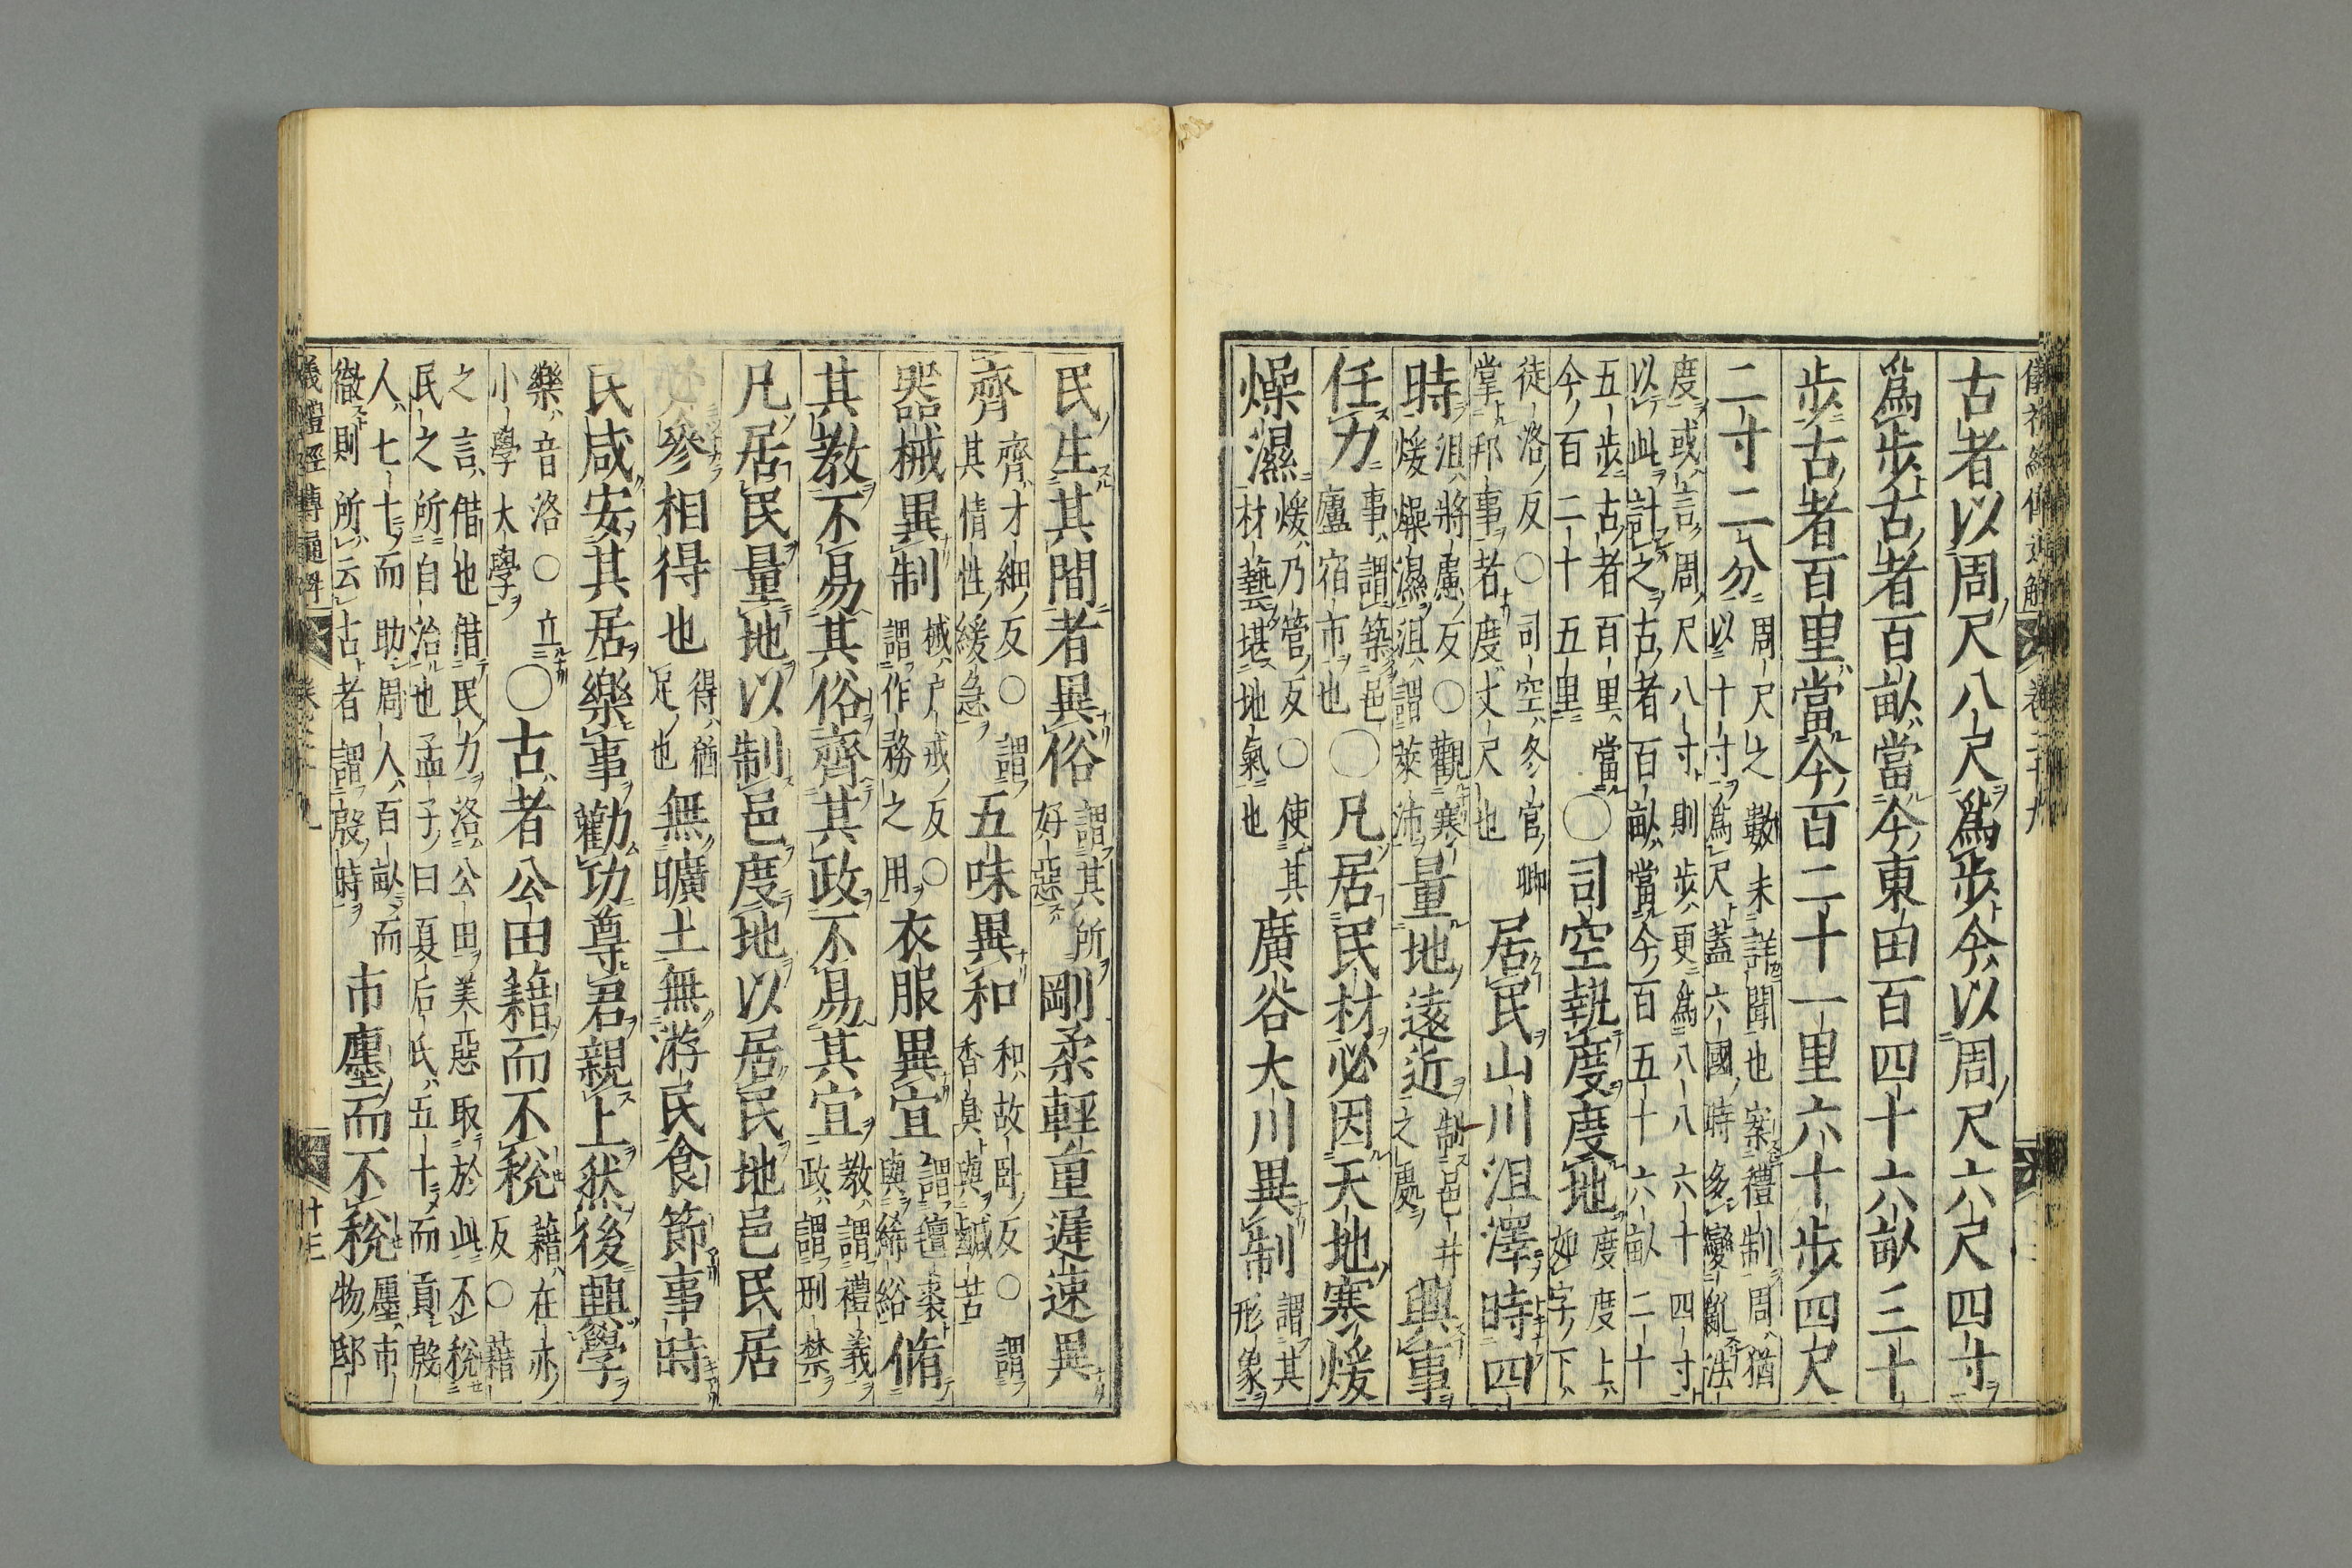 古者以周尺八尺爲步今以周尺六尺四寸
爲步古者百畝當今東田百四十六畝三十
步古者百里當今百二十一里六十步四尺
二寸二分周尺之數未詳聞也案禮制周猶
以十寸爲尺蓋六國時多變亂法
度或言周尺八寸則步更爲八八六十四寸
以此計之古者百畝當今百五十六畝二十
五步古者百里當
今百二十五里〇司空執度度地度度上
如字下
徒洛反〇司空冬官卿
掌邦事者度丈尺也居民山川沮澤時四
時沮將慮反〇觀寒
煖燥濕沮謂萊沛量地遠近制邑井
之處興事
任力事謂築邑
廬宿市也〇凡居民材必因天地寒煖
燥濕煖乃管反〇使其
材藝堪地氣也廣谷大川異制謂其
形象
民生其間者異俗謂其所
好惡剛柔輕重遲速異
齊齊才細反〇謂
其情性緩急五味異和和故臥反〇謂
香臭與鹹苦
器械異制械戶戒反〇
謂作務之用衣服異宜謂氊裘
與絺綌脩
其教不易其俗齊其政不易其宜教謂禮義
政謂刑禁
凡居民量地以制邑度地以居民地邑民居
參相得也得猶
足也無曠土無游民食節事時
民咸安其居樂事勸功尊君親上然後興學
樂音洛〇立
小學大學〇古者公田藉而不稅藉在亦
反〇藉
之言借也借民力治公田美惡取於此不稅
民之所自治也孟子曰夏后氏五十而貢殷
人七十而助周人百畝而
徹則所云古者謂殷時市廛而不稅廛市
物邸
儀禮經傳通解 卷之十九 十三